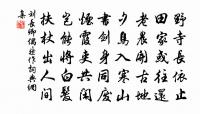 野寺長依止
田家或往還
老農開古地
夕鳥入寒山
書劍身同廢
煙霞吏共閑
豈能將白髮
扶杖出人間
劉長卿偶然作詞典網
集